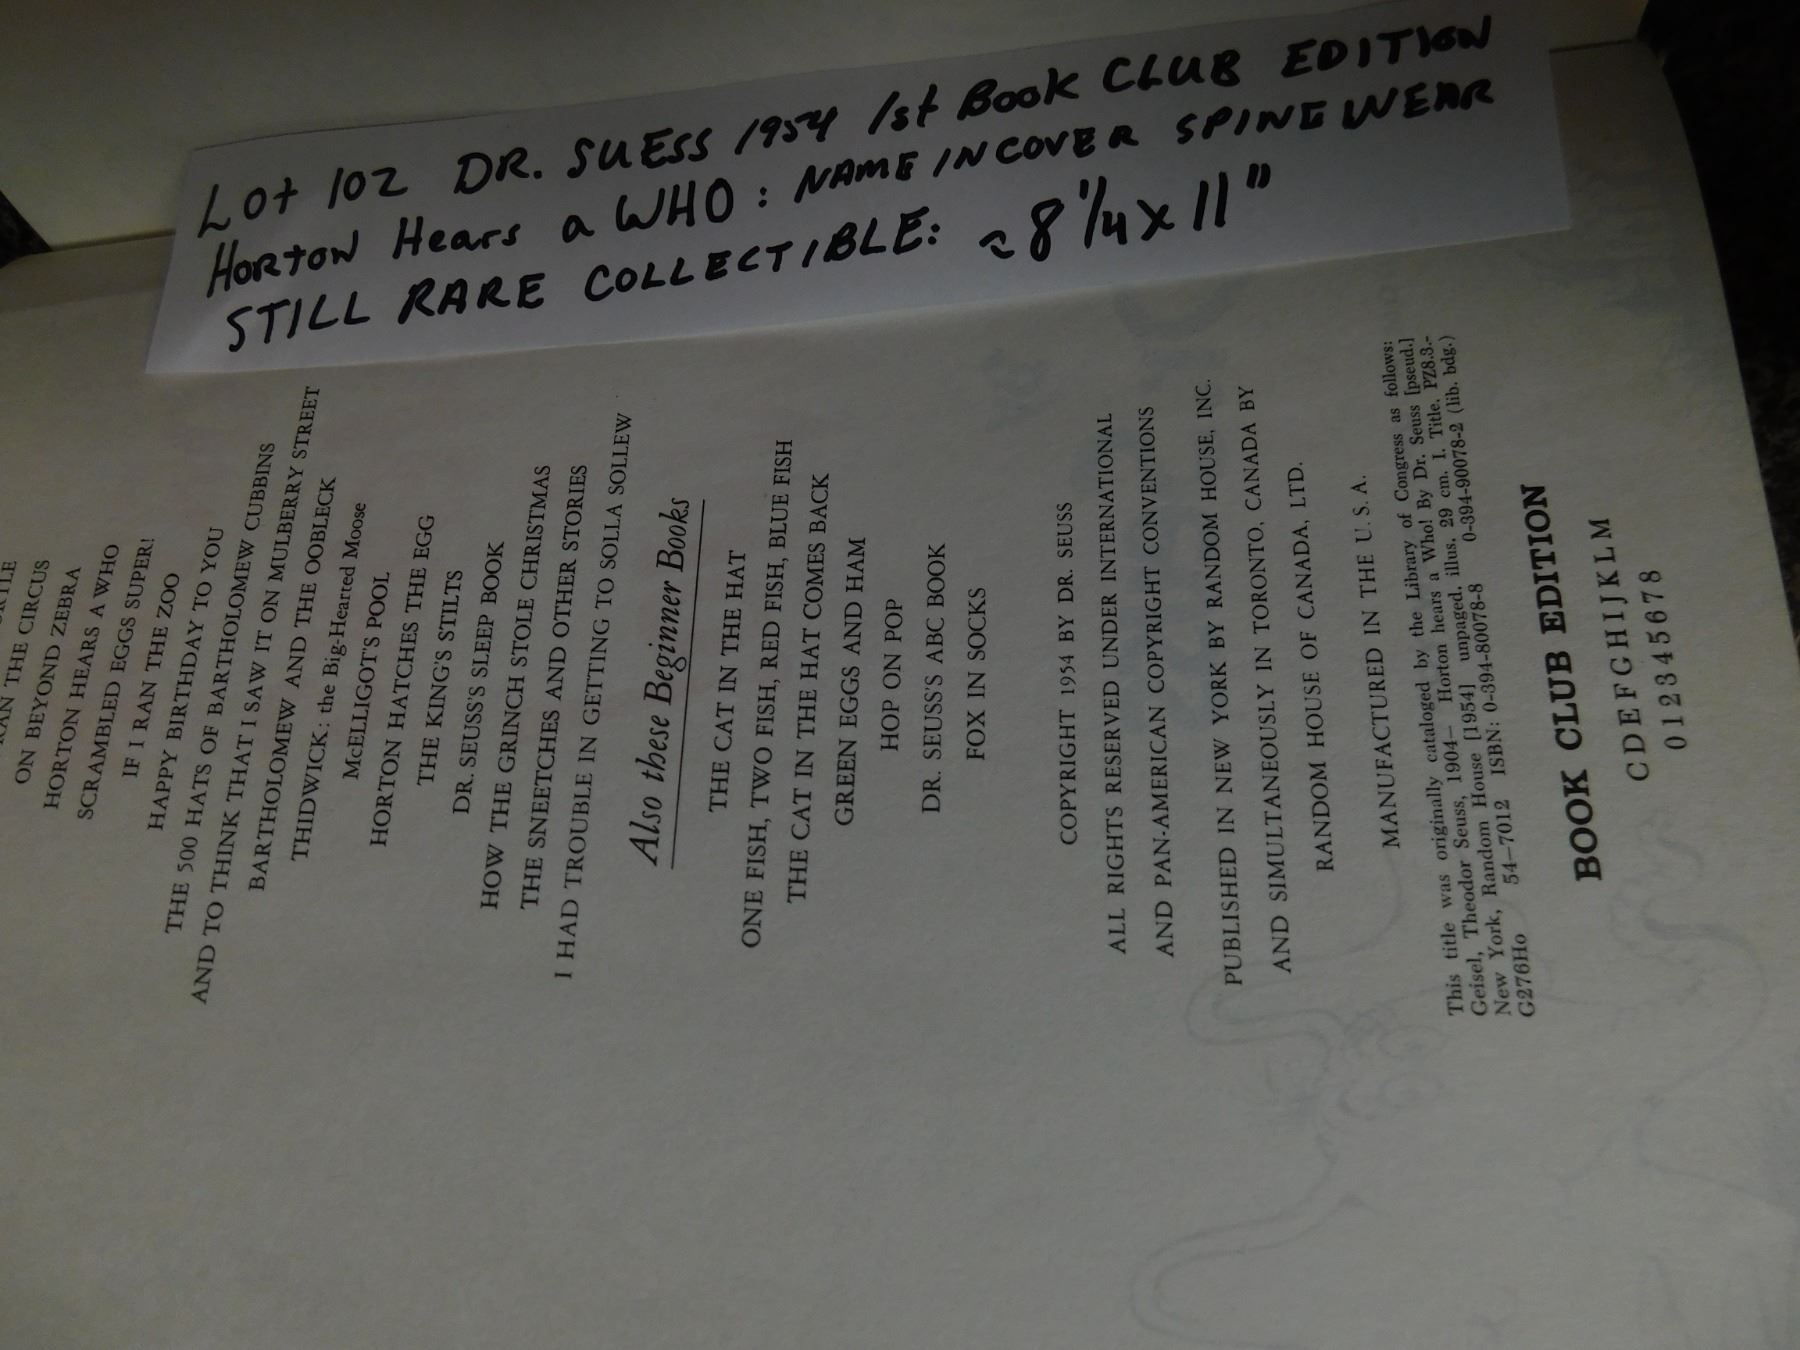 Lot 102 DR. SUESS 1954 1st Book CLUB EDITION
HORTON Hears a WHO: NAME IN COVER SPINE WEAR
STILL RARE COLLECTIBLE: ~ 8 1/4 x 11"
THE CIRCUS
ON BEYOND ZEBRA
HORTON HEARS A WHO
SCRAMBLED EGGS SUPER!
IF I RAN THE ZOO
HAPPY BIRTHDAY TO YOU
THE 500 HATS OF BARTHOLOMEW CUBBINS
AND TO THINK THAT I SAW IT ON MULBERRY STREET
BARTHOLOMEW AND THE OOBLECK
THIDWICK: the Big-Hearted Moose
McELLIGOT'S POOL
HORTON HATCHES THE EGG
THE KING'S STILTS
DR. SEUSS'S SLEEP BOOK
HOW THE GRINCH STOLE CHRISTMAS
THE SNEETCHES AND OTHER STORIES
I HAD TROUBLE IN GETTING TO SOLLA SOLLEW
Also these Beginner Books
THE CAT IN THE HAT
ONE FISH, TWO FISH, RED FISH, BLUE FISH
THE CAT IN THE HAT COMES BACK
GREEN EGGS AND HAM
HOP ON POP
DR. SEUSS'S ABC BOOK
FOX IN SOCKS
COPYRIGHT 1954 BY DR. SEUSS
ALL RIGHTS RESERVED UNDER INTERNATIONAL
AND PAN-AMERICAN COPYRIGHT CONVENTIONS
PUBLISHED IN NEW YORK BY RANDOM HOUSE, INC.
AND SIMULTANEOUSLY IN TORONTO, CANADA BY
RANDOM HOUSE OF CANADA, LTD.
MANUFACTURED IN THE U. S. A.
This title was originally cataloged by the Library of Congress as follows:
Geisel, Theodor Seuss, 1904– Horton hears a Who! By Dr. Seuss [pseud.]
New York, Random House [1954] unpaged. illus. 29 cm. I. Title. PZ8.3.-
G276Ho 54–7012 ISBN: 0-394-80078-8 0-394-90078-2 (lib. bdg.)
BOOK CLUB EDITION
C D E F G H I J K L M
0 1 2 3 4 5 6 7 8